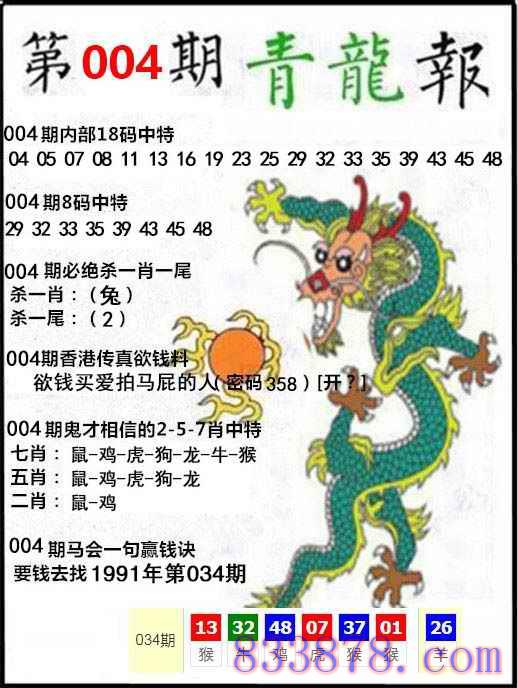 第004期青龍報
004期内部18码中特
04 05 07 08 11 13 16 19 23 25 29 32 33 35 39 43 45 48
004期8码中特
29 32 33 35 39 43 45 48
004期必绝杀一肖一尾
杀一肖:(兔)
杀一尾:(2)
004期香港传真欲钱料
欲钱买爱拍马屁的人(密码358)[开?]
004期鬼才相信的2-5-7肖中特
七肖:鼠-鸡-虎-狗-龙-牛-猴
五肖:鼠-鸡-虎-狗-龙
二肖:鼠-鸡
004期马会一句赢钱诀
要钱去找1991年第034期
034期 13 32 48 07 37 01 26
猴 牛 鸡 虎 猴 猴 羊
833878.com